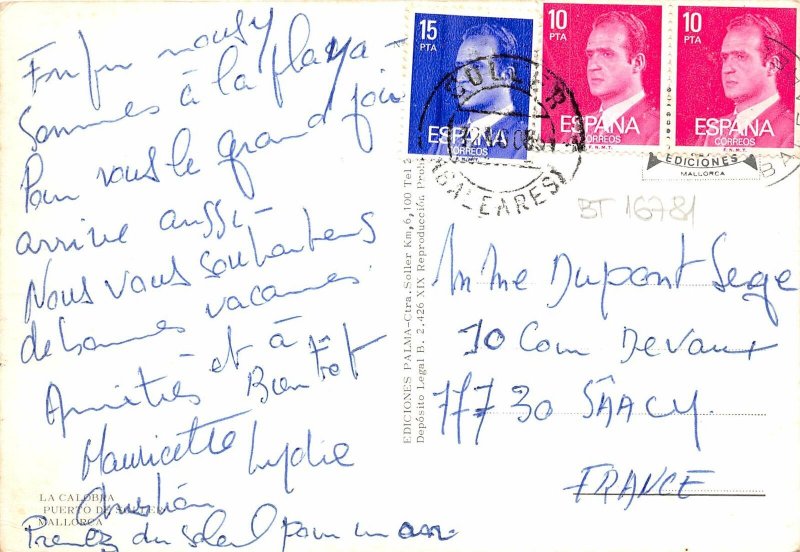 Enfin nous
sommes à la playa -
Pour vous le grand jour
arrive aussi -
Nous vous souhaitons
de bonnes vacances.
Amitiés et à
Bientôt
Mauricette Lydie
Christian
Prenez du soleil pour un an.
LA CALOBRA
PUERTO DE SOLLER
MALLORCA
EDICIONES PALMA-Ctra. Soller Km, 6,100 Tel 2
Depósito Legal B. 2.426 XIX Reproducción Proh
15
PTA
ESPAÑA
CORREOS
10
PTA
ESPAÑA
CORREOS
F.N.M.T.
10
PTA
ESPAÑA
CORREOS
F.N.M.T.
SOLLER
(BALEARES)
EDICIONES
MALLORCA
BT 16781
Mme Dupont Serge
10 Cour Devaux
77730 SÂACY.
FRANCE